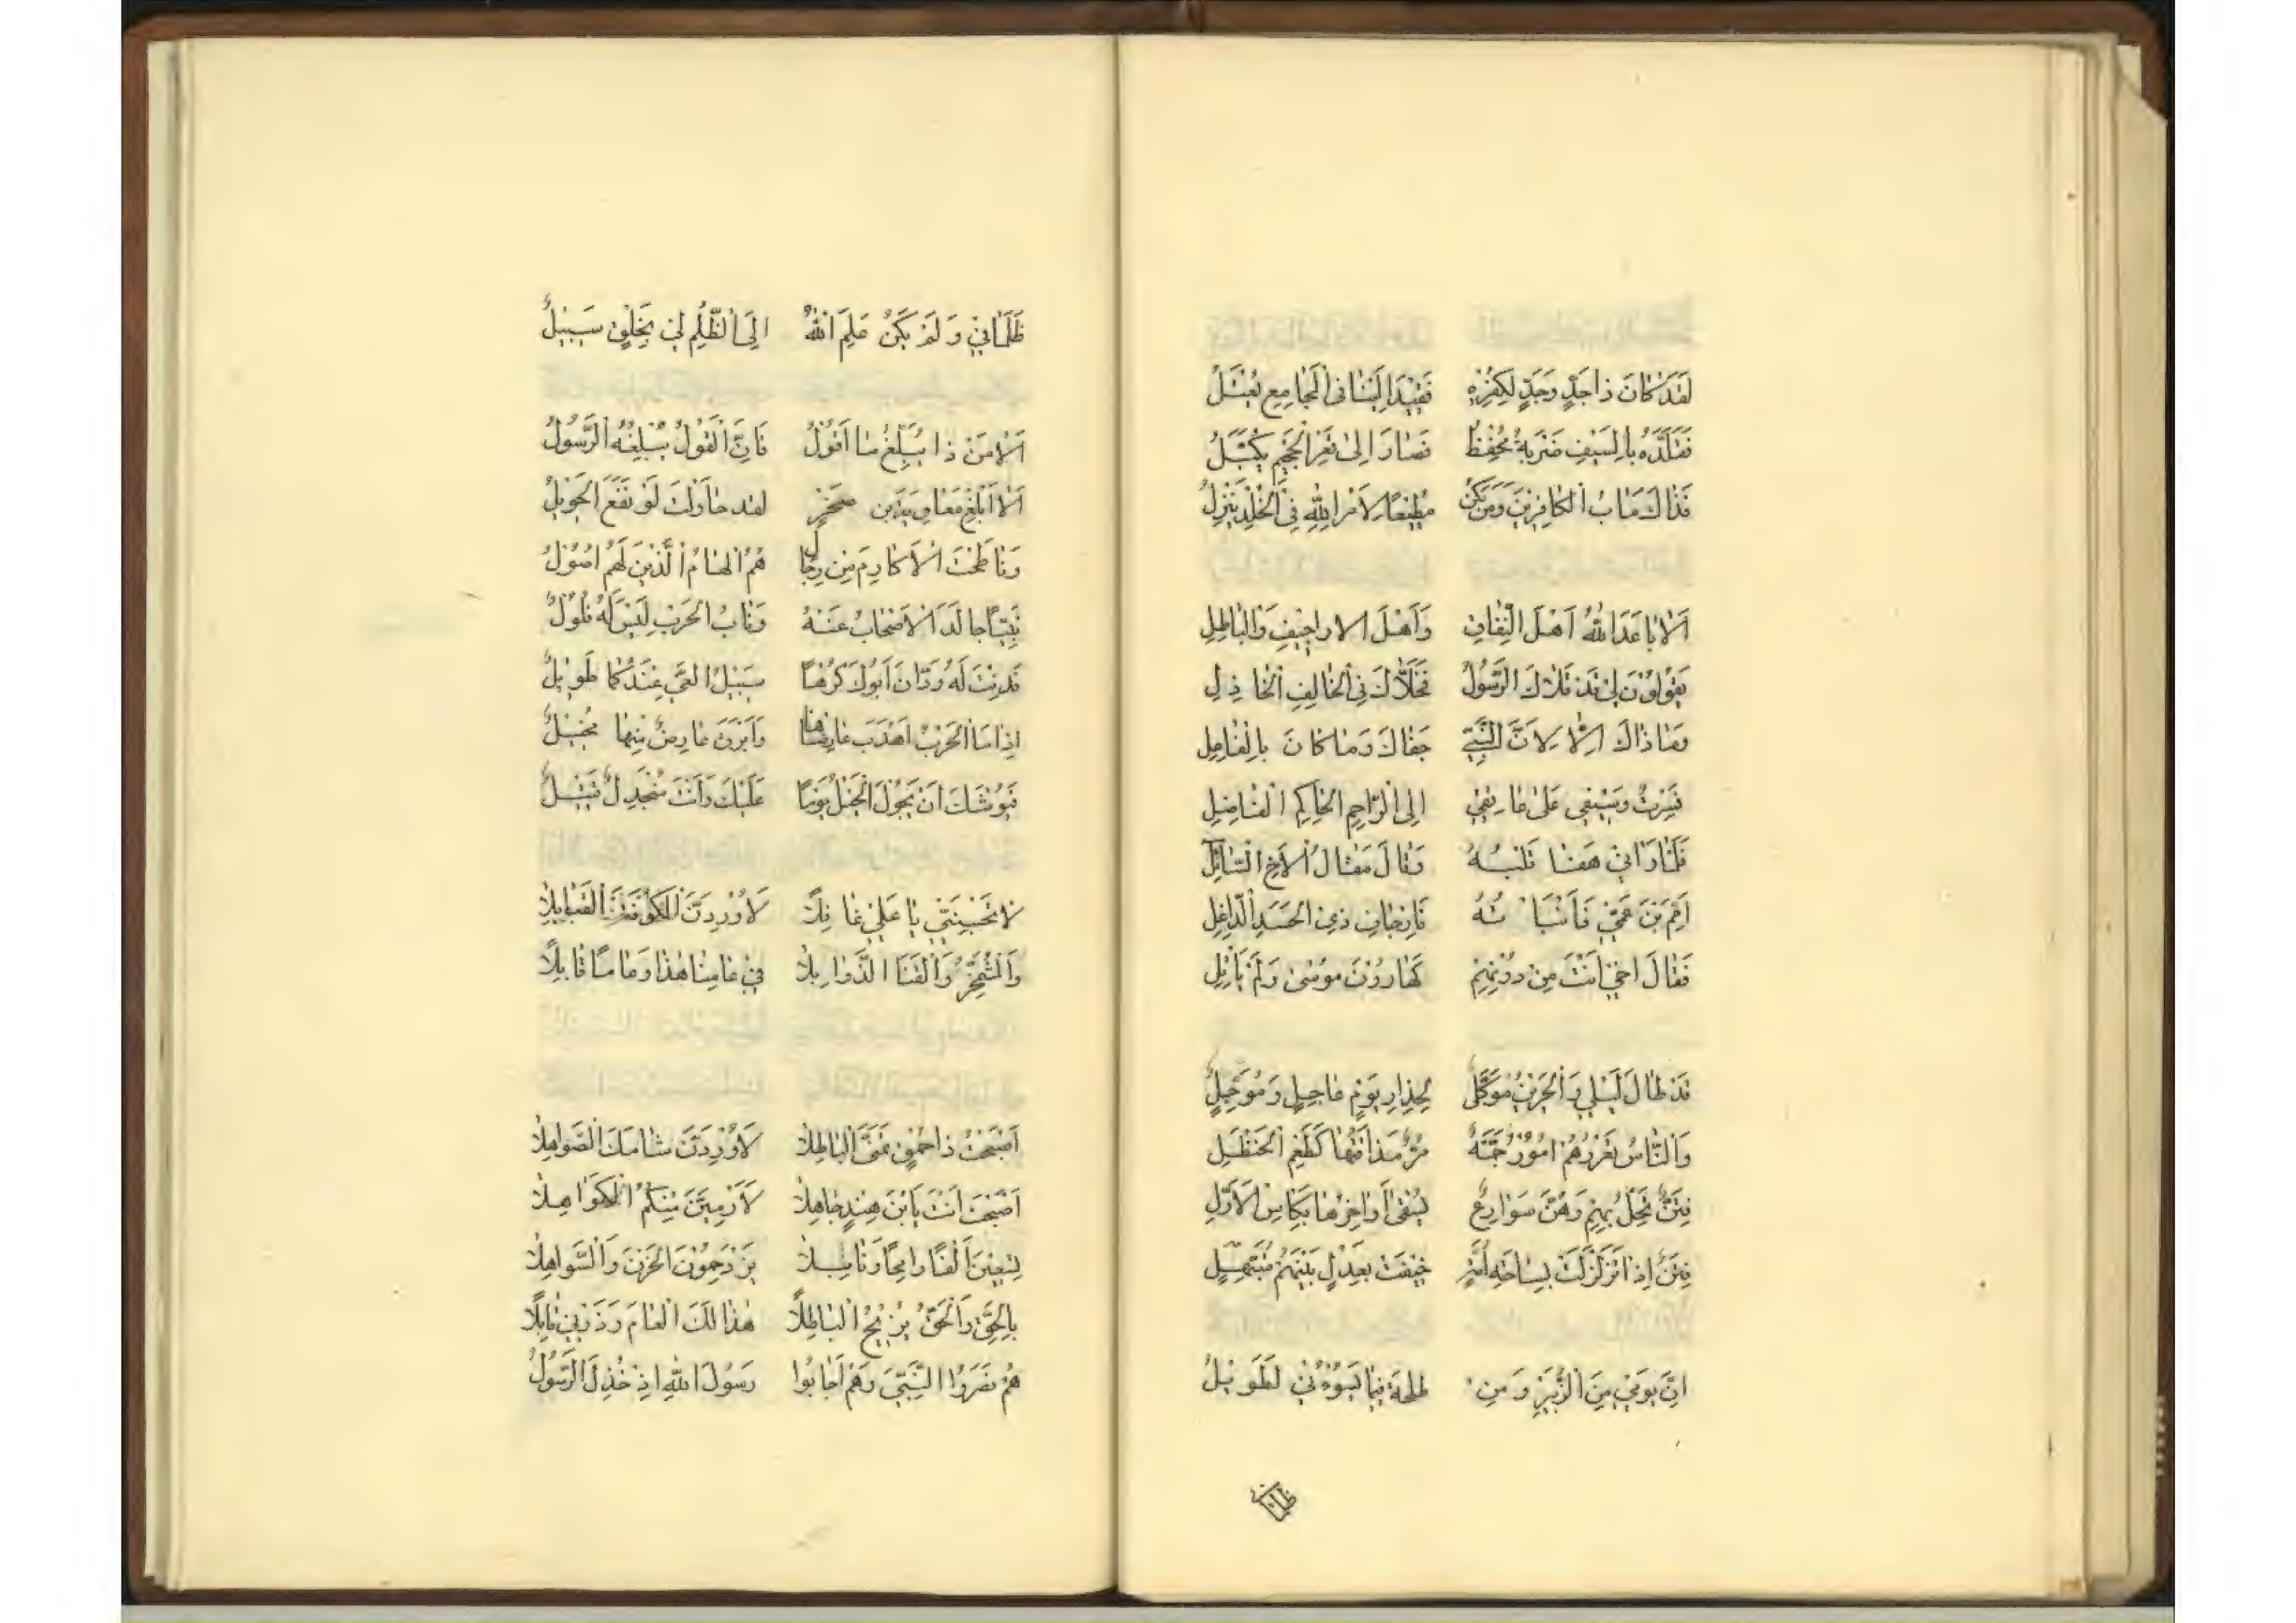 لَقَدْ كَانَ ذَا جَدٍّ وَجَدٍّ لِكُفْرِهِ فَقِيْدَ اِلَيْنَا فِى الْمَجَامِعِ يُعْتَلُ
فَقَلَّدَهُ بِالسَّيْفِ ضَرْبَةَ مُحْفِظٍ فَصَارَ اِلَى قَعْرِ الْجَحِيْمِ يُكَبَّلُ
فَذَاكَ مَاٰبُ الْكَافِرِيْنَ وَمَنْ يَكُنْ مُطِيْعًا لِاَمْرِ اللهِ فِى الْخُلْدِ يَنْزِلُ
اَلَا بَاعَدَ اللهُ اَهْلَ النِّفَاقِ وَاَهْلَ الْاَرَاجِيْفِ وَالْبَاطِلِ
يَقُوْلُوْنَ لِىْ قَدْ قَلَاكَ الرَّسُوْلُ فَخَلَّاكَ فِى الْخَالِفِ الْخَاذِلِ
وَمَا ذَاكَ اِلَّا لِاَنَّ النَّبِىَّ جَفَاكَ وَمَا كَانَ بِالْفَاعِلِ
فَسِرْتُ وَسَيْفِى عَلَى عَاتِقِىْ اِلَى الرَّاحِمِ الْحَاكِمِ الْفَاضِلِ
فَلَمَّا رَاٰنِىْ هَفَا قَلْبُهُ وَقَالَ مَقَالَ الْاَخِ السَّائِلِ
اَمِمَّ بْنَ عَمِّىْ فَاَنْبَاْتُهُ بِاِرْجَافِ ذِى الْحَسَدِ الدَّاغِلِ
فَقَالَ اَخِىْ اَنْتَ مِنْ دُوْنِهِمْ كَهَارُوْنَ مُوْسٰى وَلَمْ يَاْتَلِ
قَدْ طَالَ لَيْلِىْ وَالْحَزِيْنُ مُوَكَّلٌ لِحِذَارِ يَوْمٍ عَاجِلٍ وَمُوَجَّلٍ
وَالنَّاسُ تَعْرُوْهُمْ اُمُوْرٌ جَمَّةٌ مُرٌّ مَذَاقَتُهَا كَطَعْمِ الْحَنْظَلِ
فِتَنٌ تَحِلُّ بِهِمْ وَهُنَّ سَوَارِعُ تُسْقَى اَوَاخِرُهَا بِكَاْسِ الْاَوَّلِ
فِتَنٌ اِذَا نَزَلَتْ بِسَاحَةِ اُمَّةٍ حِيْفَتْ بِعَدْلٍ بَيْنَهُمْ مُتَبَهِّلٍ
اِنَّ يَوْمِىْ مِنَ الزُّبَيْرِ وَمِنْ طَلْحَةَ فِيْمَا يَسُوْءُنِىْ لَطَوِيْلُ
ظَلَمَانِىْ
ظَلَمَانِىْ وَلَمْ يَكُنْ عَلِمَ اللهُ اِلَى الظُّلْمِ لِىْ بِخَلْقٍ سَبِيْلُ
اَلَا مَنْ ذَا يُبَلِّغُ مَا اَقُوْلُ فَاِنَّ الْقَوْلَ يُبْلِغُهُ الرَّسُوْلُ
اَلَا اَبْلِغْ مُعَاوِيَةَ بْنَ صَخْرٍ لَقَدْ حَاوَلْتَ لَوْ نَفَعَ الْحَوِيْلُ
وَنَاطَحْتَ الْاَكَارِمَ مِنْ رِجَالٍ هُمُ الْهَامُ الَّذِيْنَ لَهُمْ اُصُوْلُ
هُمْ نَصَرُوا النَّبِىَّ وَهُمْ اَجَابُوْا رَسُوْلَ اللهِ اِذْ خُذِلَ الرَّسُوْلُ
نَبِيًّا جَالَدَ الْاَصْحَابُ عَنْهُ وَنَابُ الْحَرْبِ لَيْسَ لَهُ فُلُوْلُ
فَدِنْتَ لَهُ وَدَانَ اَبُوْكَ كُرْهًا سَبِيْلُ الْغَىِّ عِنْدَكُمَا طَوِيْلُ
اِذَا مَا الْحَرْبُ اَهْدَبَ عَارِضَاهَا وَاَبْرَقَ عَارِضٌ مِنْهَا مُخِيْلُ
فَيُوْشِكُ اَنْ يَجُوْلَ الْخَيْلُ يَوْمًا عَلَيْكَ وَاَنْتَ مُنْجَدِلٌ قَتِيْلُ
لَا تَحْسَبَنِّىْ يَا عَلِىُّ غَافِلًا لَاُوْرِدَنَّ الْكُوْفَةَ الْقَبَائِلَا
وَالْمُشْمَخِرَّ وَالْقَنَا الذَّوَابِلَا فِىْ عَامِنَا هٰذَا وَعَامًا قَابِلًا
اَصْبَحْتَ ذَا حُمْقٍ تَمَنَّى الْبَاطِلَا لَاُوْرِدَنَّ شَامَكَ الصَّوَاهِلَا
اَصْبَحْتَ اَنْتَ يَا بْنَ هِنْدٍ جَاهِلًا لَاَرْمِيَنَّ مِنْكُمُ الْكَوَاهِلَا
تِسْعِيْنَ اَلْفًا رَامِحًا وَنَابِلًا يَزْدَحِمُوْنَ الْحَزْنَ وَالسَّوَاهِلَا
بِالْحَقِّ وَالْحَقُّ يُزِيْحُ الْبَاطِلَا هٰذَا لَكَ الْعَامَ وَذَرْنِىْ قَابِلًا